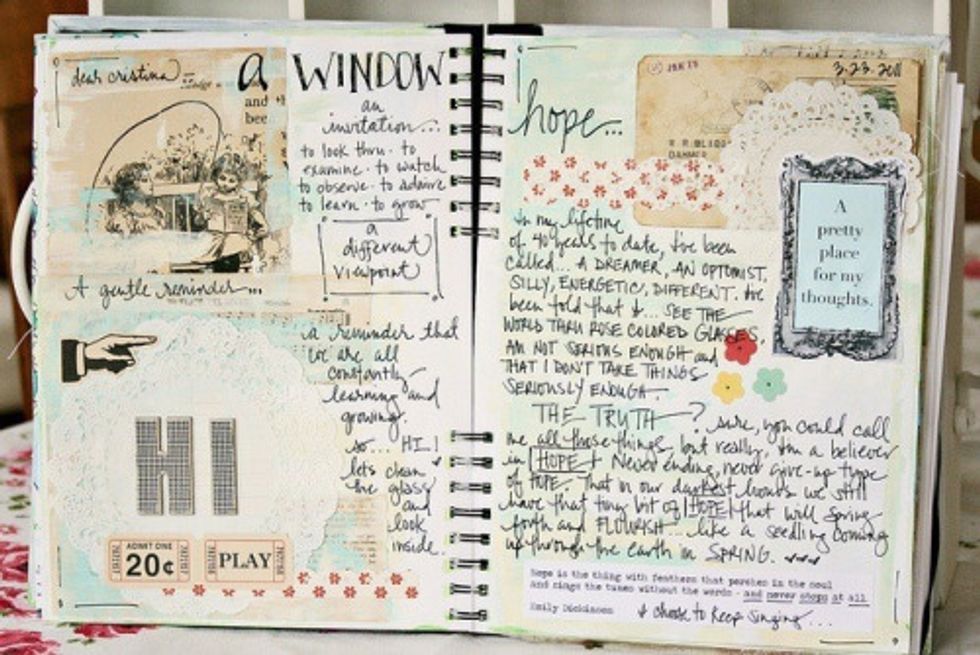 dear cristina
a WINDOW
and
bee
an
invitation...
to look thru · to
examine · to watch
to observe · to admire
to learn · to grow
a
different
viewpoint
A gentle reminder...
a reminder that
we are all
constantly
learning and
growing.
so... HI!
lets clean
the glass
and
look
inside.
HI
ADMIT ONE
20¢
PLAY
JAN 25
3.23.2011
hope...
in my lifetime
of 40 years to date, I've been
called... A DREAMER, AN OPTOMIST,
SILLY, ENERGETIC, DIFFERENT. I've
been told that I... SEE THE
WORLD THRU ROSE COLORED GLASSES,
AM NOT SERIOUS ENOUGH and
THAT I DON'T TAKE THINGS
SERIOUSLY ENOUGH.
A
pretty
place
for my
thoughts.
THE TRUTH? sure, you could call
me all those things, but really, I'm a believer
in HOPE. Never ending, never give-up type
of HOPE. That in our darkest hours we still
have that tiny bit of HOPE that will spring
forth and FLOURISH... like a seedling coming
up through the earth in SPRING.
Hope is the thing with feathers that perches in the soul
and sings the tunes without the words - and never stops at all
Emily Dickinson
I choose to keep singing...